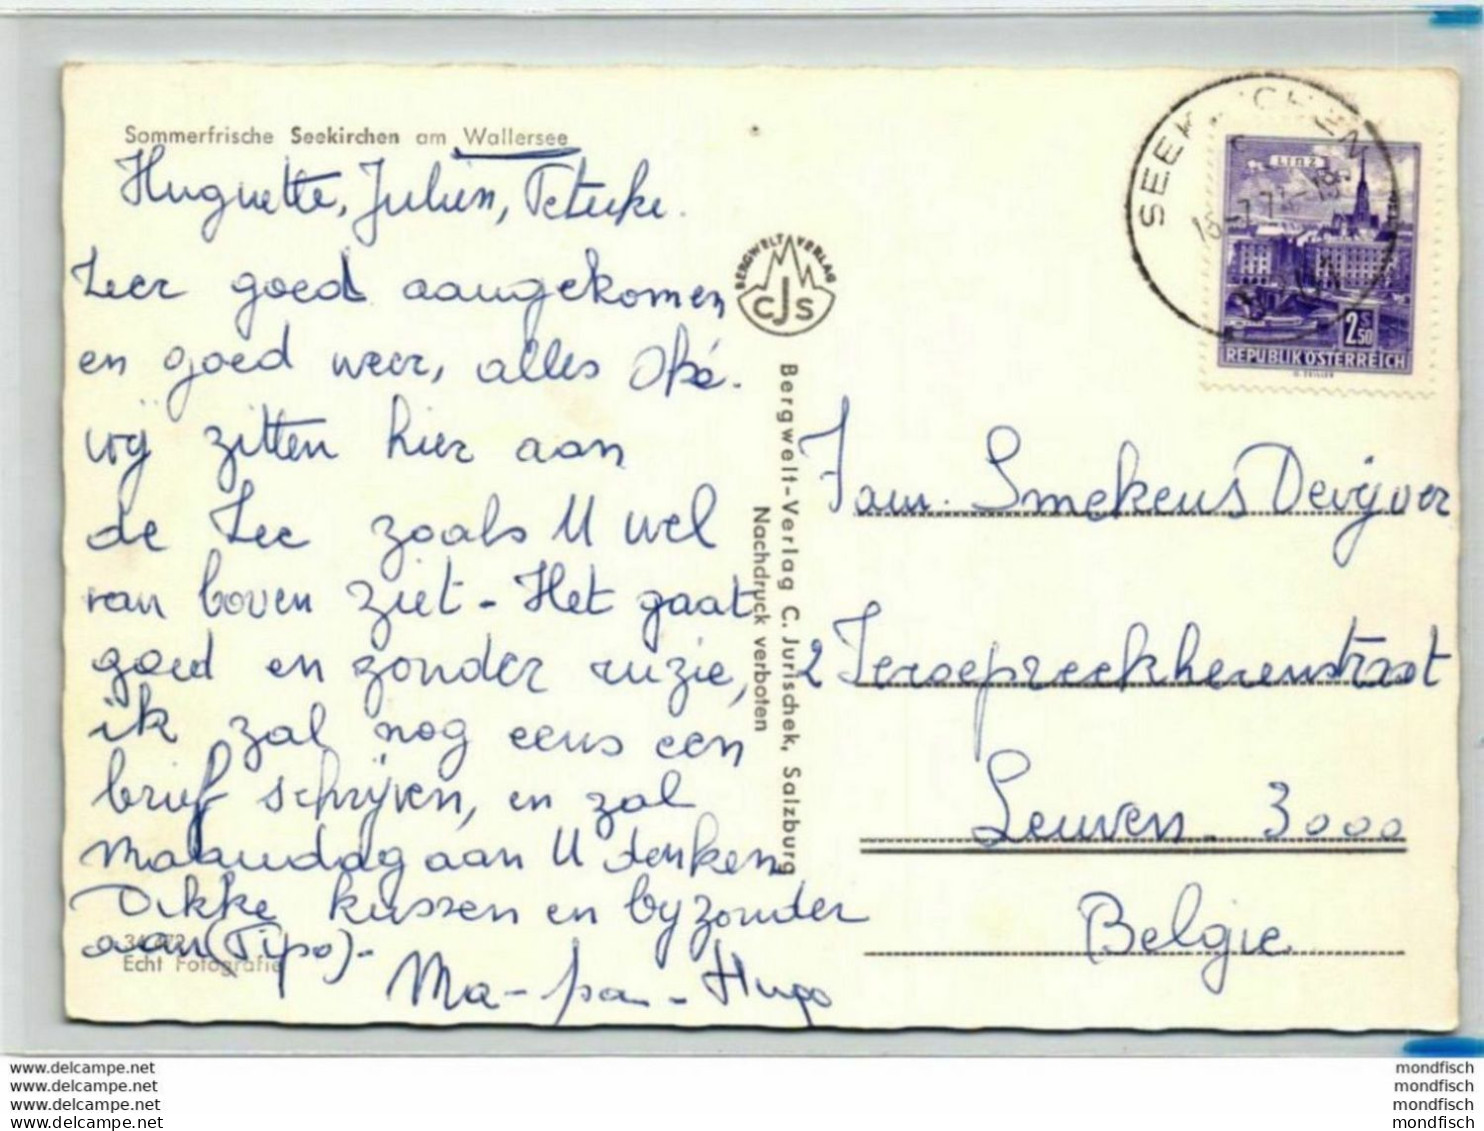 Sommerfrische Seekirchen am Wallersee
Huguette, Julien, Petuke.
Zeer goed aangekomen
en goed weer, alles Oké.
wij zitten hier aan
de Zee zoals U wel
van boven ziet - Het gaat
goed en zonder ruzie,
ik zal nog eens een
brief schrijven, en zal
maandag aan U denken
Dikke kussen en byzonder
aan (Tipo) -
Ma - pa - Hugo
Echt Fotografie
BERGWELT VERLAG
CJS
Bergwelt-Verlag C. Jurischek, Salzburg
Nachdruck verboten
SEEKIRCHEN
LINZ
2 S 50
REPUBLIK ÖSTERREICH
Fam. Smekens Devijver
2 Jeroepreekherenstraat
Leuven - 3000
België
www.delcampe.net
www.delcampe.net
www.delcampe.net
www.delcampe.net
mondfisch
mondfisch
mondfisch
mondfisch